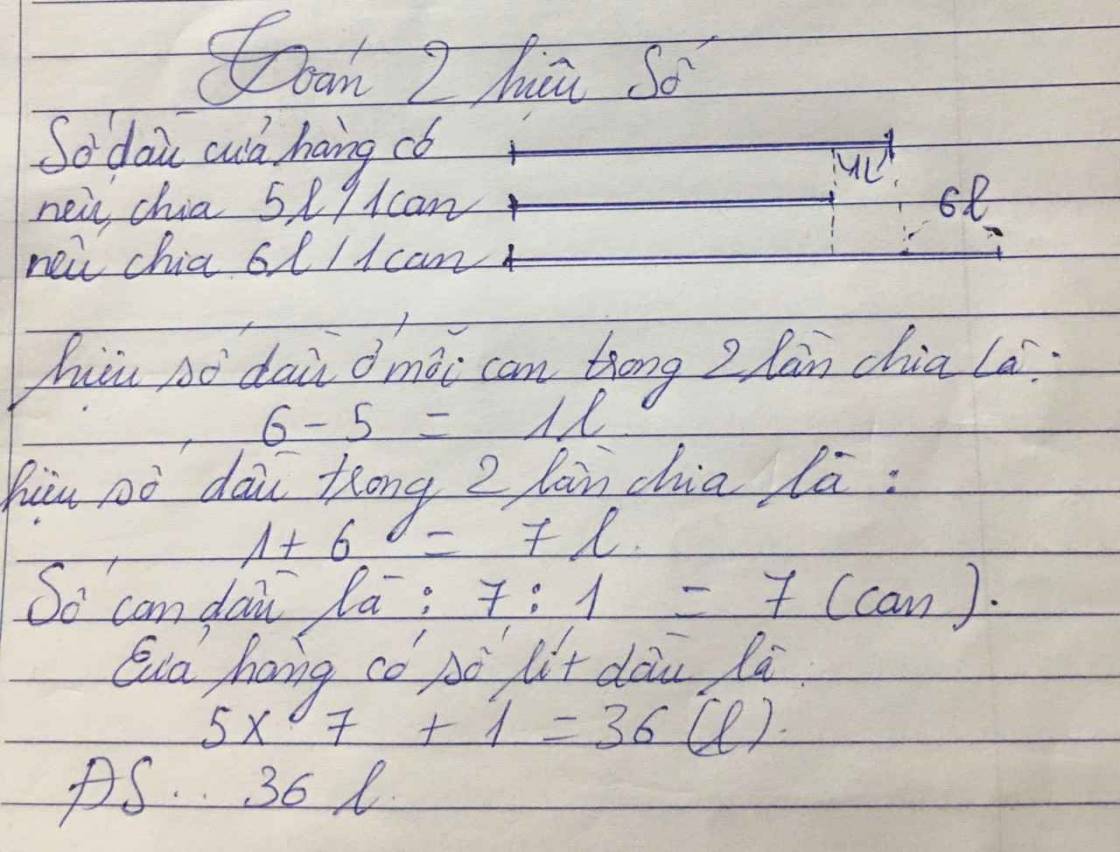 Toán 2 hiệu số
Số dầu cửa hàng có
nếu chia 5l/1can
nếu chia 6l/1can
1l
6l
hiệu số dầu ở mỗi can trong 2 lần chia là:
6 - 5 = 1l
hiệu số dầu trong 2 lần chia là :
1 + 6 = 7 l.
Số can dầu là : 7 : 1 = 7 (can).
Cửa hàng có số lít dầu là.
5 x 7 + 1 = 36 (l).
ĐS .. 36 l.